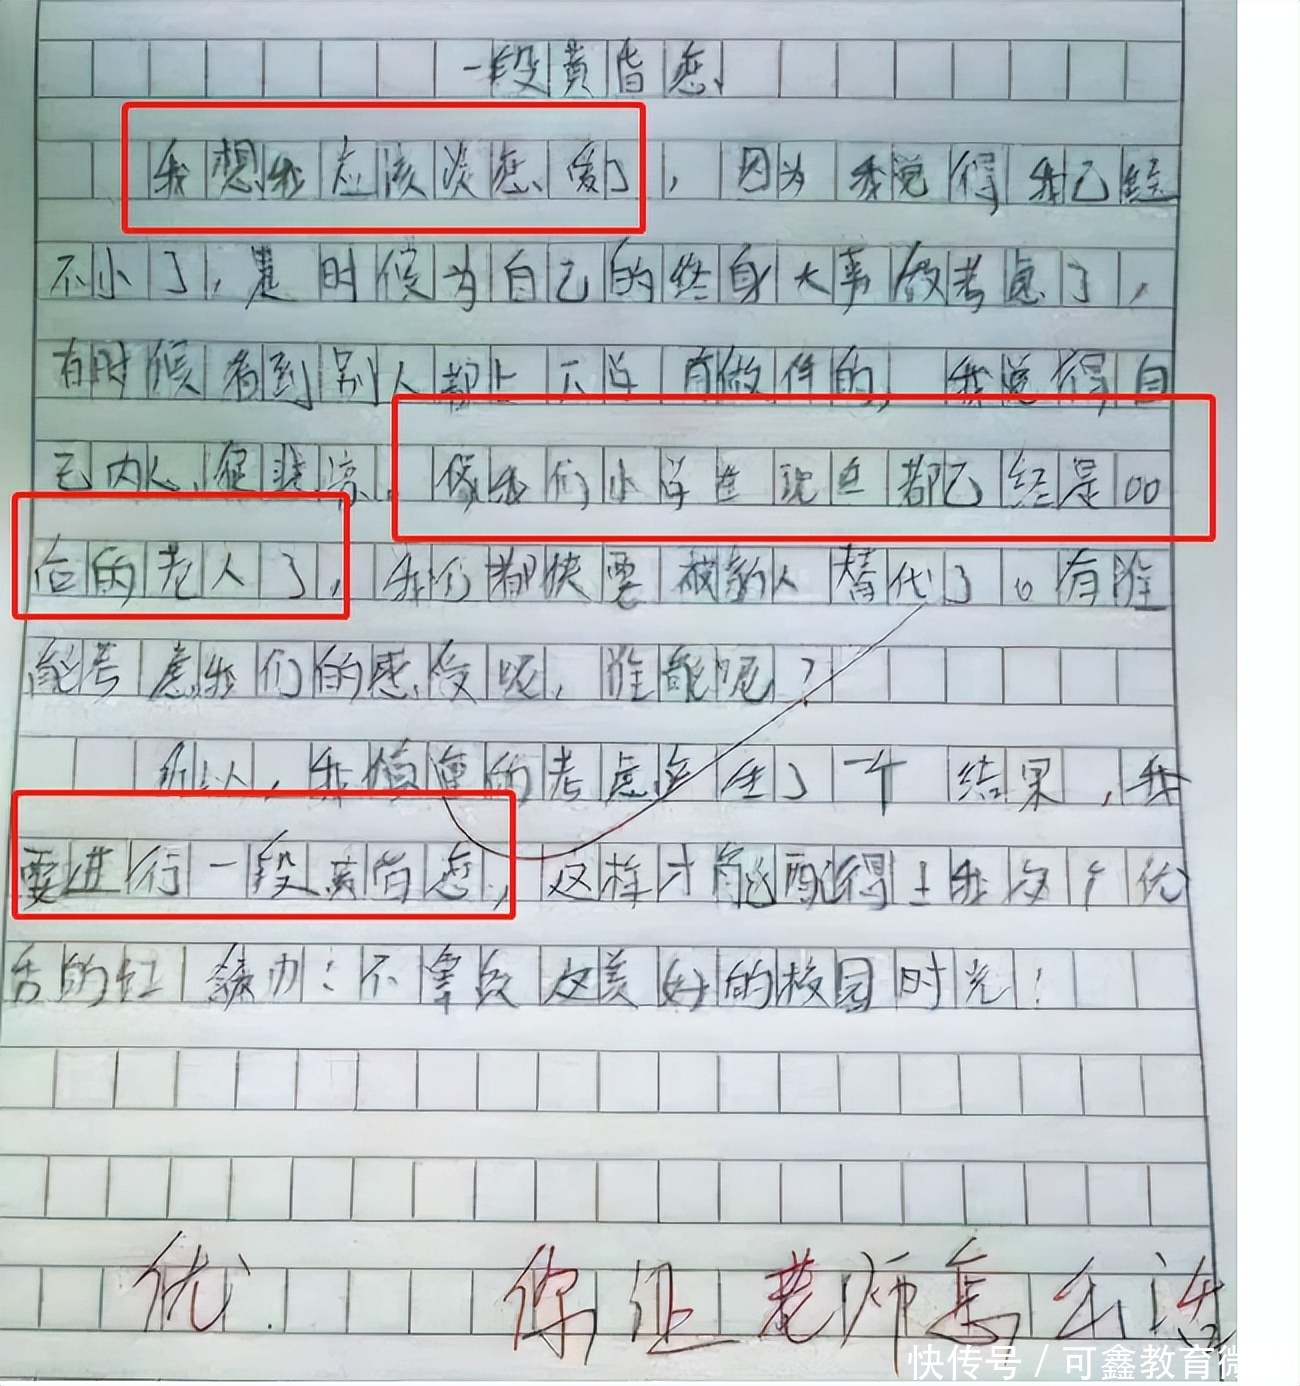 一段黄昏恋
我想我应该谈恋爱了，因为我觉得我已经
不小了，是时候为自己的终身大事做考虑了，
有时候看到别人都上下学有做伴的，我觉得自
己内心很悲凉，像我们小学生现在都已经是00
后的老人了，我们都快要被新人替代了。有谁
能考虑我们的感受呢，谁能呢？
所以，我慎重的考虑产生了一个结果，我
要进行一段黄昏恋，这样才能配得上我这个优
秀的红领巾！不辜负这美好的校园时光！
优 你让老师怎么活
快传号 / 可鑫教育微